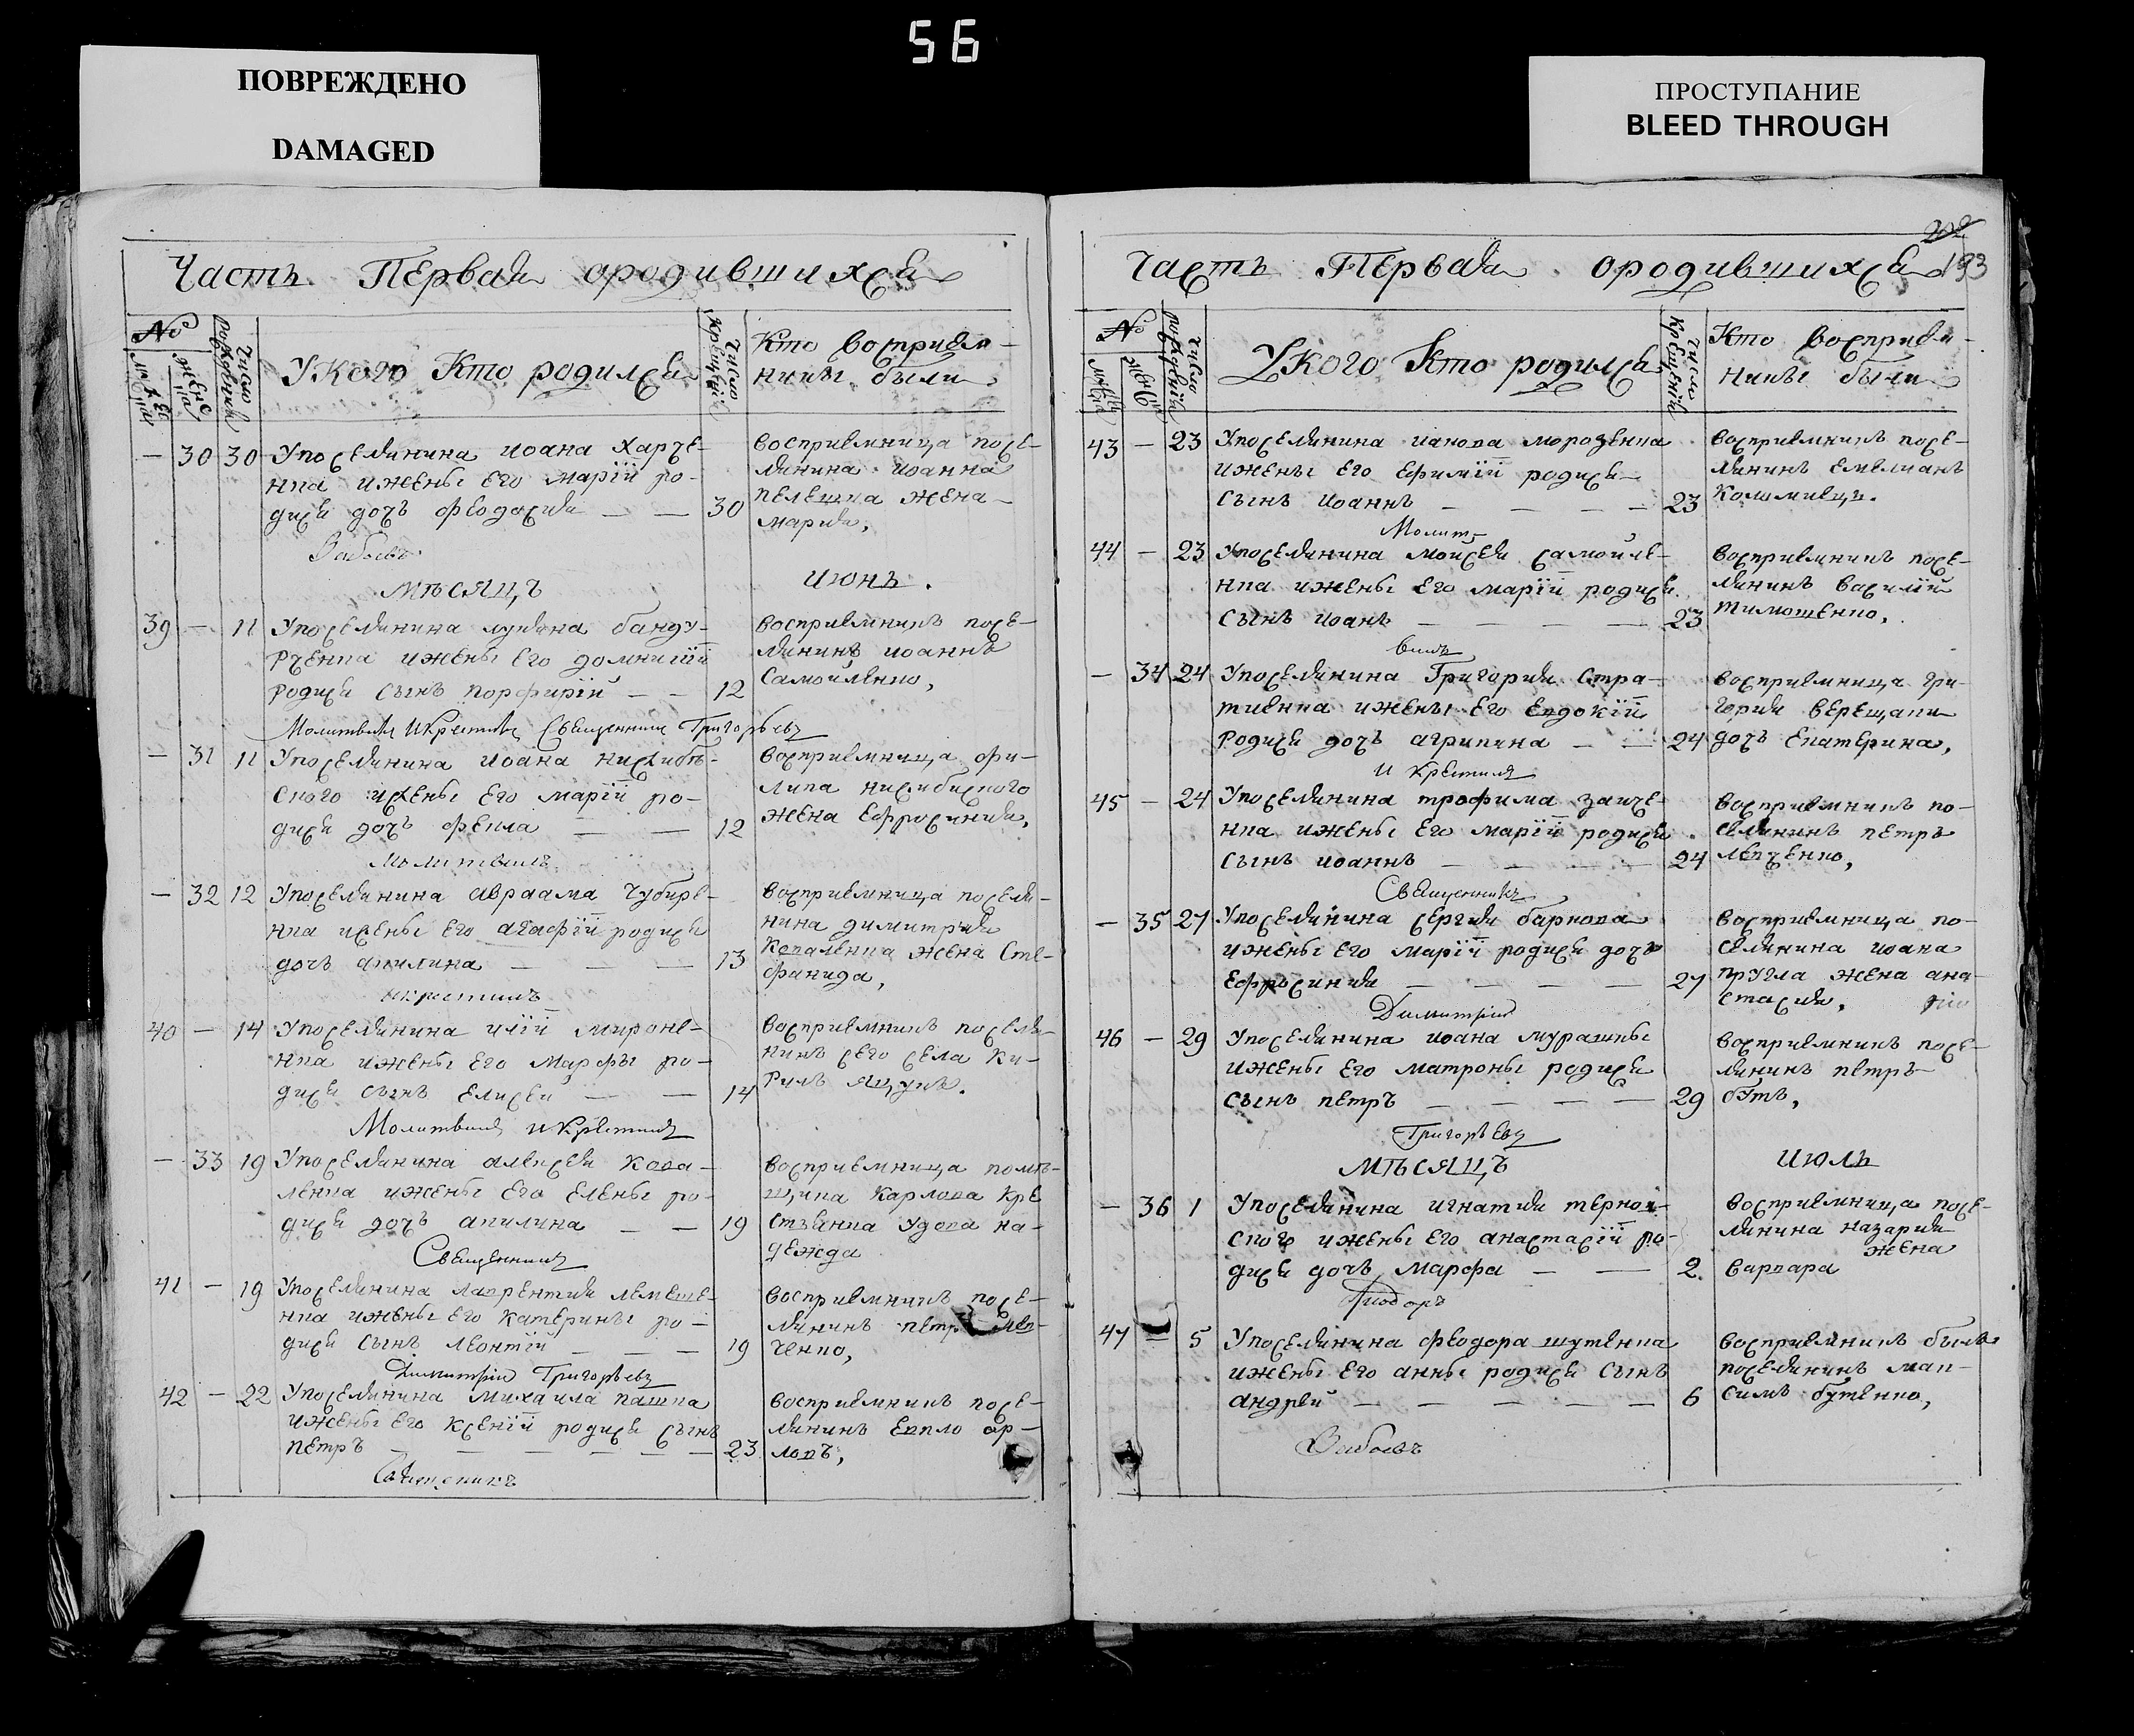 56
ПОВРЕЖДЕНО
DAMAGED
ПРОСТУПАНИЕ
BLEED THROUGH
Часть Первая ородившихся
№ Число рождения Укого Кто родился Число крещенія Кто восприем-
ники были,
— 30 30 Упоселянина иоана Харче-
нка ижены его маріи ро-
дися дочь феодосия — — 30
восприемница посе-
лянина иоанна
пелешка жена
мария,
мѣсяцъ июнь.
39 — 11 Упоселянина лукяна банду-
рченка ижены его домникіи
родися сынъ порфирій — — 12
восприемникъ посе-
лянинъ иоаннъ
Самойленко,
Молитвилъ Икрестилъ Священникъ Григорьевъ
— 31 11 Упоселянина иоана
ского ижены его маріи ро-
дися дочь фекла — — 12
восприемница фи-
липа
жена Ефросиния,
Молитвилъ
— 32 12 Упоселянина авраама Чубире-
нка ижены его агафіи родися
дочь акилина — — — 13
восприемница поселя-
нина димитрия
Коваленка жена Сте-
фанида,
икрестилъ
40 — 14 Упоселянина иліи мироне-
нка ижены его Марфы ро-
дися сынъ елисей — — 14
восприемникъ поселя-
нинъ сего села Ки-
рилъ Яцукъ.
Молитвилъ икрестилъ
— 33 19 Упоселянина алексея Кова-
ленка ижены его елены ро-
дися дочь акилина — — 19
восприемница помѣ-
щика Карлова Кре
стьянка удова на-
дежда
Священникъ
41 — 19 Упоселянина лаврентия лемеше-
нка ижены его катерины ро-
дися сынъ леонтій — — — 19
восприемникъ посе-
лянинъ петръ лев-
ченко,
Димитрій Григорьевъ
42 — 22 Упоселянина михаила пашка
ижены его ксеніи родися сынъ
петръ — — — — — 23
восприемникъ посе-
лянинъ Евпло ор-
ловъ,
Священникъ
202
193
Часть Первая ородившихся
№ Число рожденія Укого Кто родился Число Крещенія Кто восприем-
ники были
43 — 23 Упоселянина иакова морозенка
ижены его ефиміи родися
сынъ иоаннъ — — — — 23
восприемникъ посе-
лянинъ емелианъ
Коломиецъ.
Молит-
44 — 23 Упоселянина мойсея самойле-
нка ижены его маріи родися
сынъ иоанъ — — — — 23
восприемникъ посе-
лянинъ василій
тимошенко,
вилъ
— 34 24 Упоселянина Григория Стра-
тиенка ижены его евдокіи
родися дочь агрипина — — 24
восприемница гри-
гория верещаки
дочь Екатерина,
и крестилъ
45 — 24 Упоселянина трофима заиче-
нка ижены его маріи родися
сынъ иоаннъ — — — — 24
восприемникъ по-
селянинъ петръ
левченко,
Священникъ
— 35 27 Упоселянина сергия баркова
ижены его маріи родися дочь
Ефросиния — — — — 27
восприемница по-
селянина иоана
пругла жена ана-
стасия,
Димитрій
46 — 29 Упоселянина иоана мурашкы
ижены его матроны родися
сынъ петръ — — — — 29
восприемникъ посе-
лянинъ петръ
бутъ,
Григорьевъ
мѣсяцъ июль
— 36 1 Упоселянина игнатия терно-
ского ижены его анастасіи ро-
дися дочь марфа — — 2
восприемница посе-
лянина назария
жена
варвара
47 — 5 Упоселянина феодора шутенка
ижены его анны родися сынъ
андрей — — — — — 6
восприемникъ былъ
поселянинъ мак-
симъ бутенко,